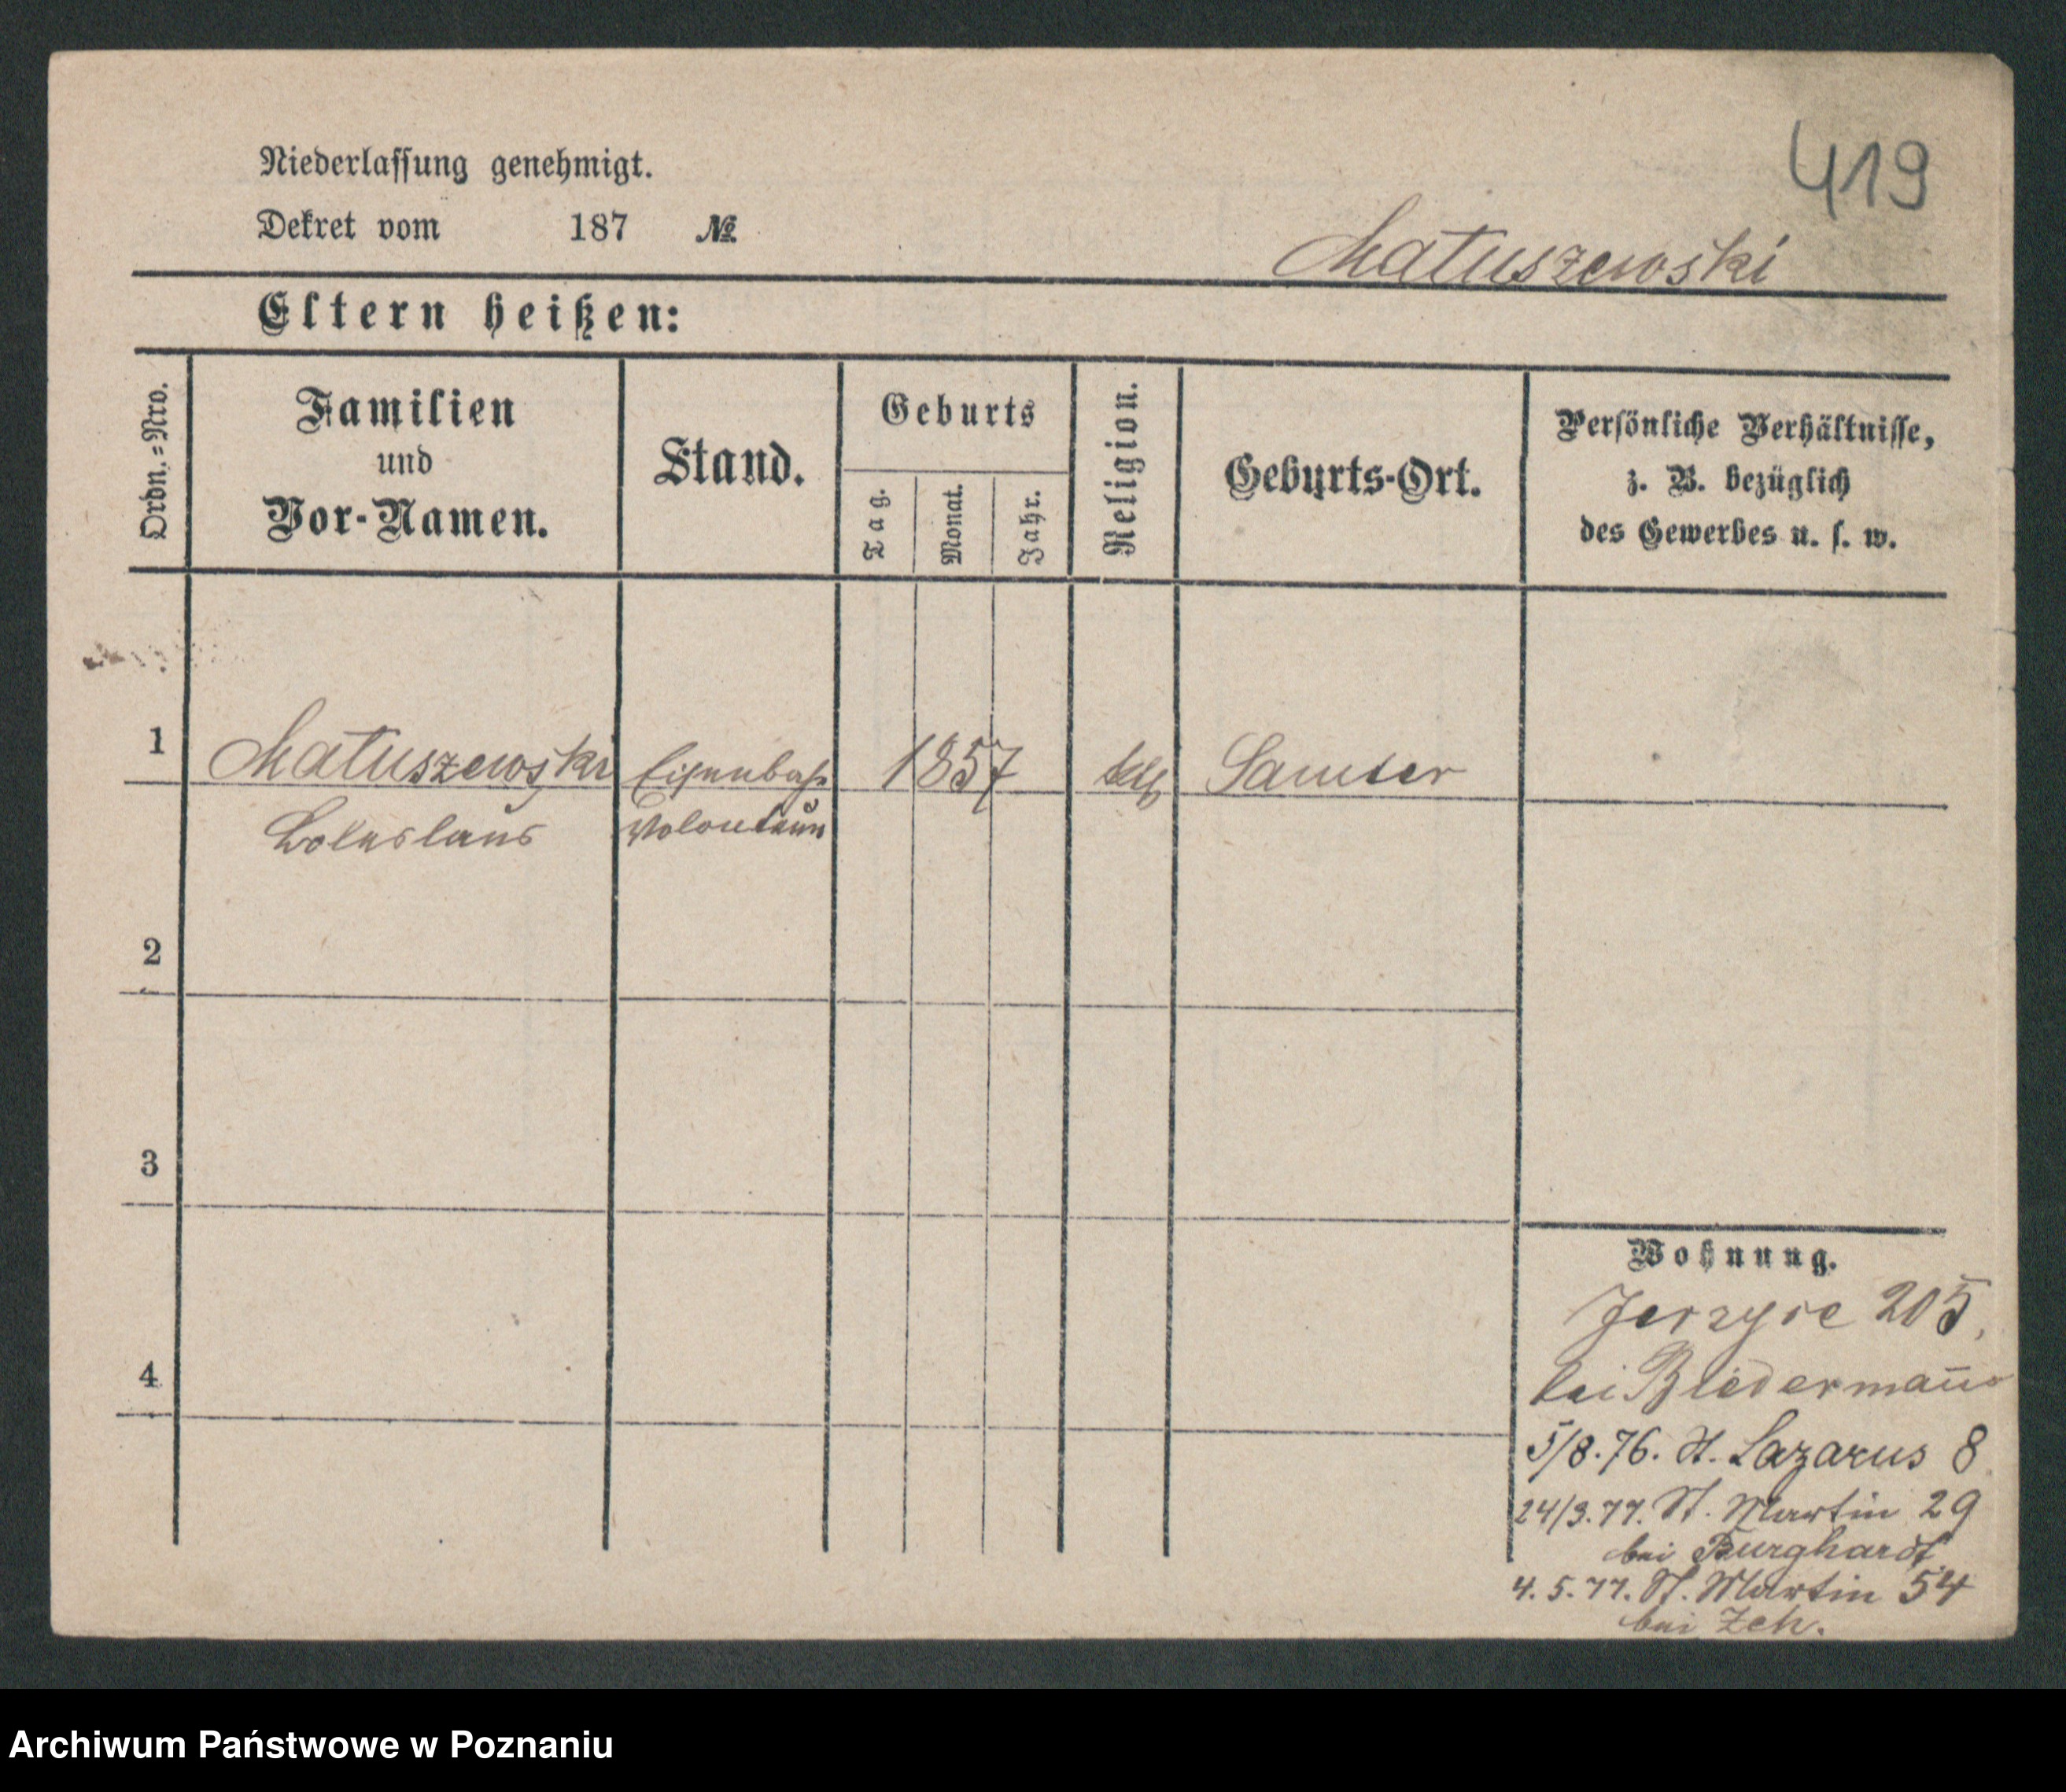 419
Niederlassung genehmigt.
Dekret vom 187 №
Matuszewski
Eltern heißen:
Ordn.-Nro.
Familien
und
Vor-Namen.
Stand.
Geburts
Tag.
Monat.
Jahr.
Religion.
Geburts-Ort.
Persönliche Verhältnisse,
z. B. bezüglich
des Gewerbes u. s. w.
1 Matuszewski Eisenbahn 1857 kth Samter
Boleslaus Volontair
2
3
4
Wohnung.
Jerzyce 205,
bei Biedermann
5/8.76. St. Lazarus 8
24/3.77. St. Martin 29
bei Burghardt
4.5.77. St. Martin 54
bei Zeh.
Archiwum Państwowe w Poznaniu